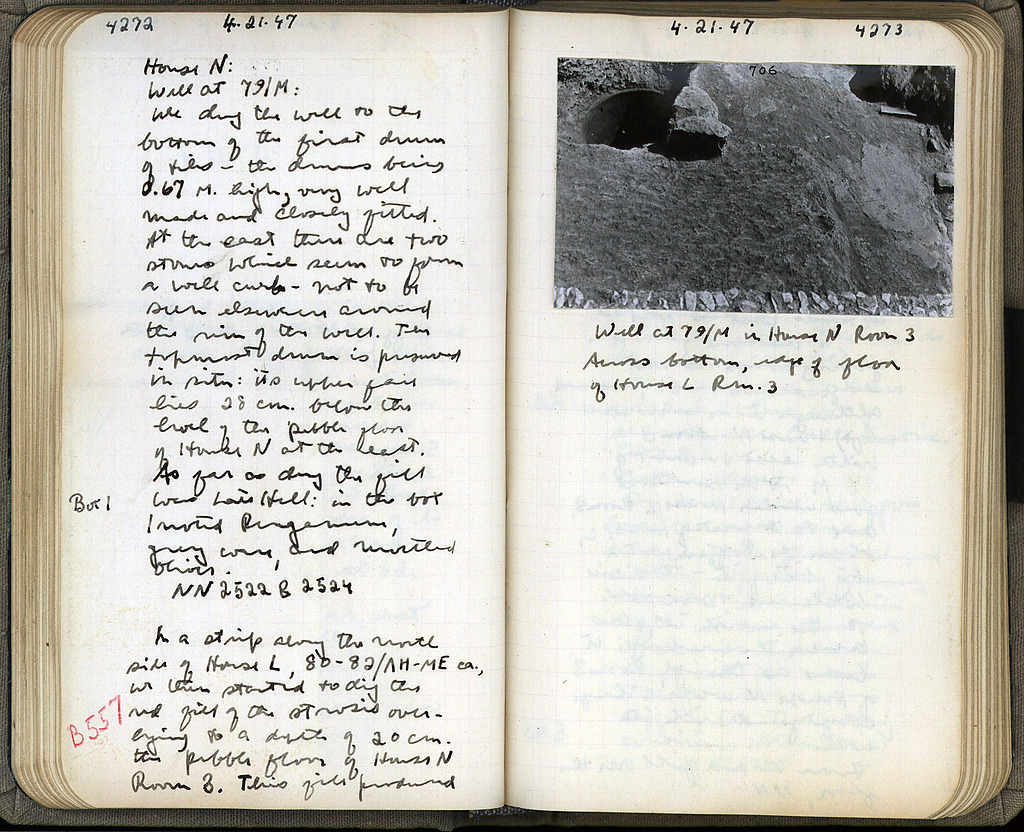 4272
4-21-47
House N:
Well at 79/M:
We dug the well to the
bottom of the first drum
of tiles - the drums being
0.67 M. high, very well
made and closely fitted.
At the east there are two
stones which seem to form
a well curb - not to be
seen elsewhere around
the rim of the well. The
topmost drum is preserved
in situ: its upper face
lies 28 cm. below the
level of the pebble floor
of House N at the east.
As far as dug the fill
was Late Hell: in the box
Box 1
I noted Pergamene,
grey ware, and mottled
NN 2522 B 2524
In a strip along the north
side of House L, 80-82/ΛΗ-ΜΕ ca.,
we then started to dig the
red fill of the strosis over-
B 557
lying to a depth of 20 cm.
the pebble floor of House N
Room 3. This fill produced
4-21-47
4273
706
Well at 79/M in House N Room 3
Across bottom, edge of floor
of House L Rm. 3